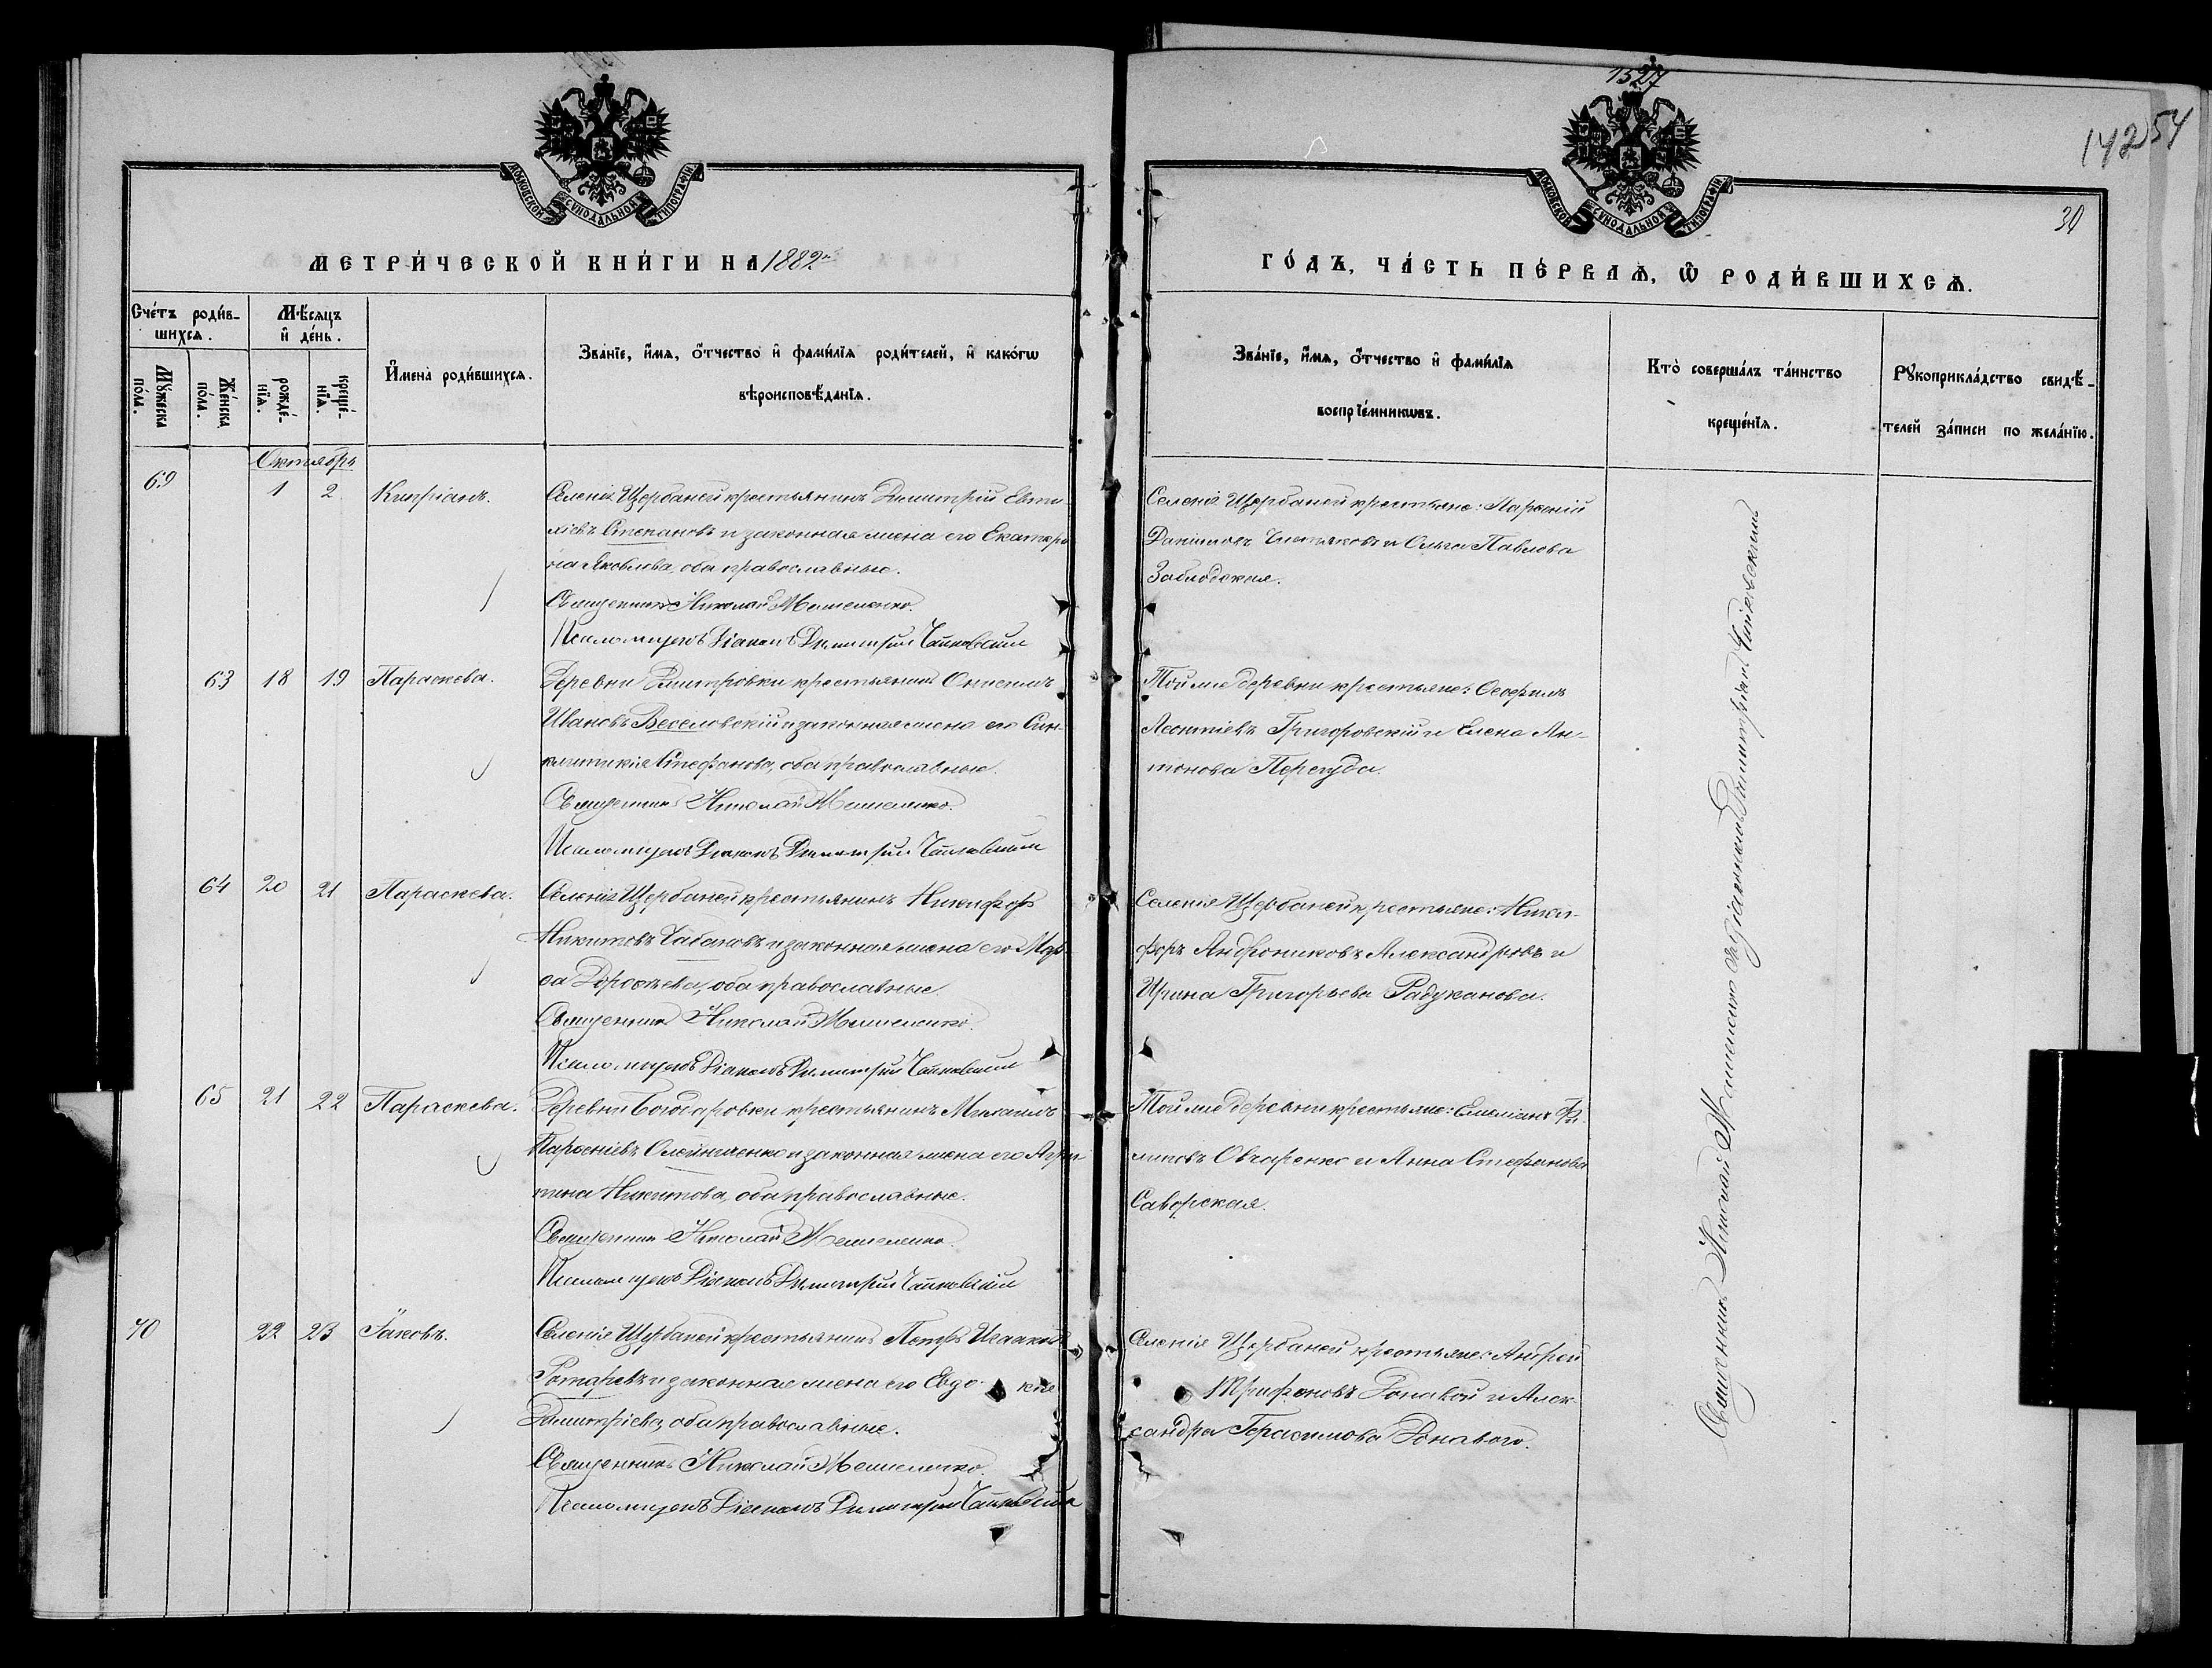 1527
142
54
30
МОСКОВСКОЙ СѴНОДАЛЬНОЙ ТИПОГРАФІИ
МОСКОВСКОЙ СѴНОДАЛЬНОЙ ТИПОГРАФІИ
МЕТРИ́ЧЕСКОЙ КНИ́ГИ НА 1882й
ГО́ДЪ, ЧА́СТЬ ПЕ́РВАѦ, Ѿ РОДИ́ВШИХСѦ.
Сче́тъ роди́в-
шихсѧ.
Мѣ́сѧцъ
и҆ де́нь.
Мꙋ́жеска
по́ла.
Же́нска
по́ла.
рожде́-
нїѧ.
креще́-
нїѧ.
И҆мена̀ роди́вшихсѧ.
Зва́нїе, и҆́мѧ, ѻ҆́тчество и҆ фами́лїѧ роди́телей, и҆ како́гѡ
вѣроисповѣ́данїѧ.
Зва́нїе, и҆́мѧ, ѻ҆́тчество и҆ фами́лїѧ
воспрїе́мникѡвъ.
Кто̀ соверша́лъ та́инство
креще́нїѧ.
Рꙋкоприкла́дство свидѣ́-
телей за́писи по жела́нїю.
Октябрь
69 1 2 Кипріанъ.
Селенія Щербаней крестьянинъ Димитрій Евти-
міевъ Степановъ и законная жена его Екатери
на Яковлева, оба православные.
Священникъ Николай
Псаломщикъ Діаконъ Димитрій Чайковскій
Селенія Щербаней крестьяне: Парѳеній
Даніиловъ и Ольга Павлова
Заблодская.
63 18 19 Параскева.
Деревни Дмитровки крестьянинъ Онисимъ
Ивановъ Веселовскій и законная жена его Син-
клитикія Стефанова, оба православные.
Священникъ Николай
Псаломщикъ Діаконъ Димитрій Чайковскій
Той же деревни крестьяне: Ѳеофилъ
Леонтіевъ Григоровскій и Елена Ан-
тонова Перегуда.
64 20 21 Параскева.
Селенія Щербаней крестьянинъ Никифоръ
Никитовъ Чабановъ и законная жена его Мар-
ѳа Дороѳеева, оба православные
Священникъ Николай
Псаломщикъ Діаконъ Димитрій Чайковскій
Селенія Щербаней крестьяне: Ники-
форъ Андрониковъ Александровъ и
Ирина Григорьева Радуканова.
65 21 22 Параскева.
Деревни Богодаровки крестьянинъ Михаилъ
Парѳеніевъ Олейниченко и законная жена его Агри-
пина Никитова, оба православные.
Священникъ Николай
Псаломщикъ Діаконъ Димитрій Чайковскій
Той же деревни крестьяне: Емеліанъ Фи-
липовъ Овчаренко и Анна Стефанова
Саворская.
70 22 23 Іаковъ.
Селенія Щербаней крестьянинъ Петръ Исааковъ
Ротаревъ и законная жена его Евдо-кія
Димитріева, оба православные.
Священникъ Николай
Псаломщикъ Діаконъ Димитрій Чайковскій
Селенія Щербаней крестьяне: Андрей
Трифоновъ и Алек-
сандра Герасимова
Священникъ Николай съ Діакономъ Димитріемъ Чайковскимъ